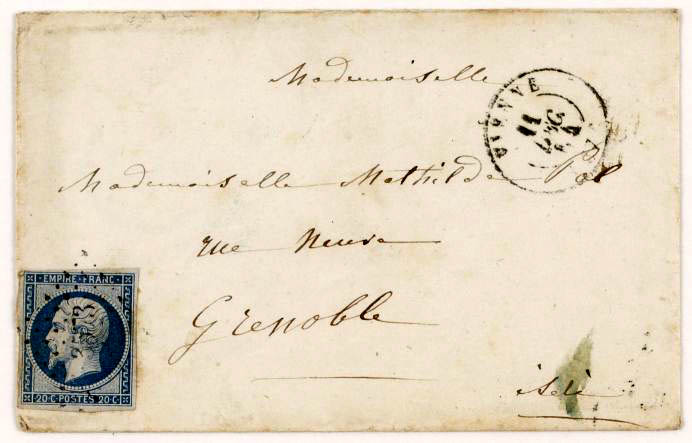 Mademoiselle
VIENNE
11
DEC
54
Mademoiselle Mathilde
rue Neuve
Grenoble
isère
EMPIRE · FRANC ·
20·C·POSTES 20·C